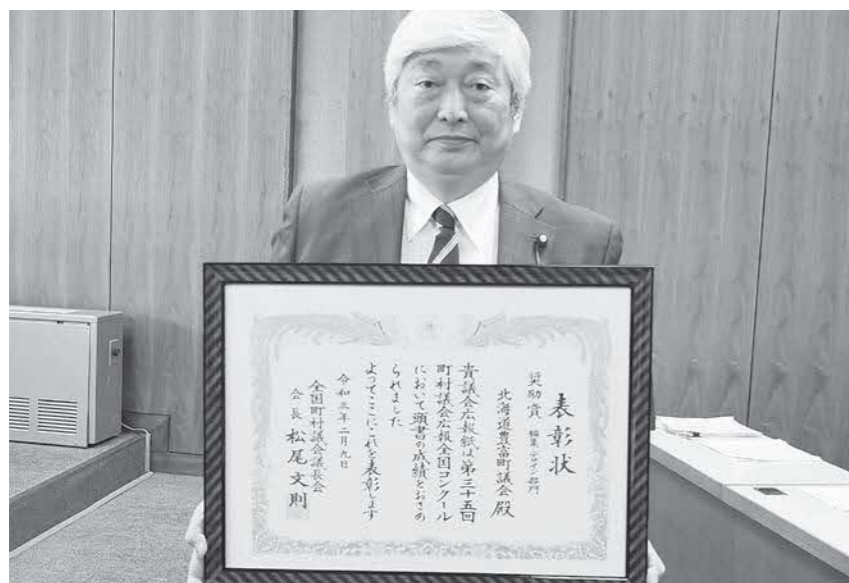 表彰状
奨励賞 編集・デザイン部門
北海道豊富町議会 殿
貴議会広報紙は第三十五回
町村議会広報全国コンクール
において頭書の成績をおさめ
られました
よってここにこれを表彰します
令和三年二月九日
全国町村議会議長会
会長 松尾文則